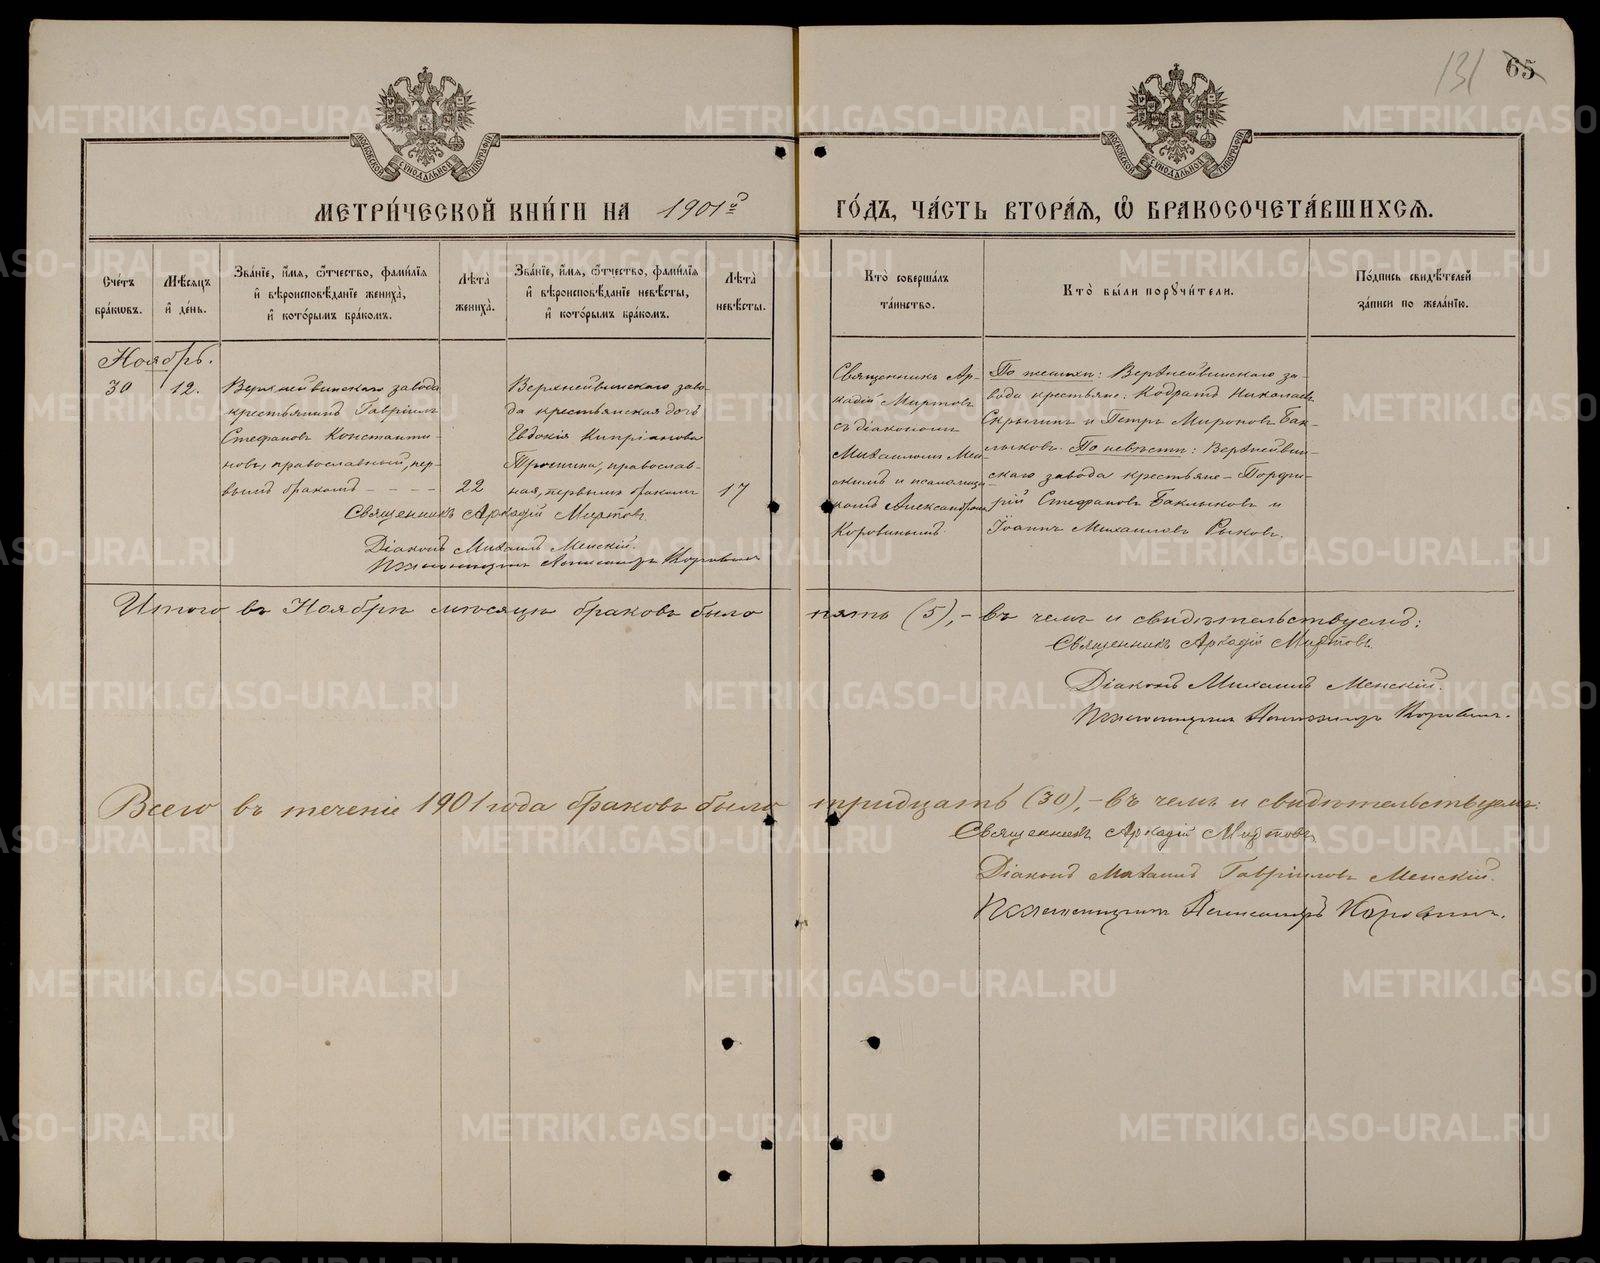 131 65
МОСКОВСКОЙ СѴНОДАЛЬНОЙ ТИПОГРАФІИ
МОСКОВСКОЙ СѴНОДАЛЬНОЙ ТИПОГРАФІИ
МЕТРИ́ЧЕСКОЙ КНИ́ГИ НА 1901й
ГО́ДЪ, ЧА́СТЬ ВТОРА́Я, Ѡ҆ БРАКОСОЧЕТА́ВШИХСЯ.
Сче́тъ
бра́кѡвъ.
Мѣ́сяцъ
и҆ де́нь.
Зва́нїе, и҆́мя, ѻ҆́тчество, фами́лїя
и҆ вѣроисповѣ́данїе жениха̀,
и҆ кото́рымъ бра́комъ.
Лѣта̀
жениха̀.
Зва́нїе, и҆́мя, ѻ҆́тчество, фами́лїя
и҆ вѣроисповѣ́данїе невѣ́сты,
и҆ кото́рымъ бра́комъ.
Лѣта̀
невѣ́сты.
Кто̀ соверша́лъ
та́инство.
Кто̀ бы́ли порꙋчи́тели.
По́дпись свидѣ́телей
за́писи по жела́нїю.
Ноябрь.
30
12.
Верхнейвинскаго завода
крестьянинъ Гавріилъ
Стефановъ Константи-
новъ, православный, пер-
вымъ бракомъ - - - -
22
Верхнейвинскаго заво-
да крестьянская дочь
Евдокія Кипріанова
Трошина, православ-
ная, первымъ бракомъ
17
Священникъ Аркадій Миртовъ.
Діаконъ Михаилъ Менскій.
Псаломщикъ Александръ Коровинъ
Священникъ Ар-
кадій Миртовъ
съ діакономъ
Михаиломъ Мен-
скимъ и псаломщи-
комъ Александромъ
Коровинымъ.
По женихѣ: Верхнейвинскаго за-
вода крестьяне: Кодратъ Николаевъ
Скрыгинъ и Петръ Мироновъ Бак-
лыковъ. По невѣстѣ: Верхнейвин-
скаго завода крестьяне – Порфи-
рій Стефановъ Баклыковъ и
Іоаннъ Михаиловъ Рыковъ.
Итого въ Ноябрѣ мѣсяцѣ браковъ было пять (5), – въ чемъ и свидѣтельствуемъ:
Священникъ Аркадій Миртовъ.
Діаконъ Михаилъ Менскій.
Псаломщикъ Александръ Коровинъ.
Всего въ теченіе 1901 года браковъ было тридцать (30), – въ чемъ и свидѣтельствуемъ:
Священникъ Аркадій Миртовъ
Діаконъ Михаилъ Гавріиловъ Менскій.
Псаломщикъ Александръ Коровинъ.
METRIKI.GASO-URAL.RU